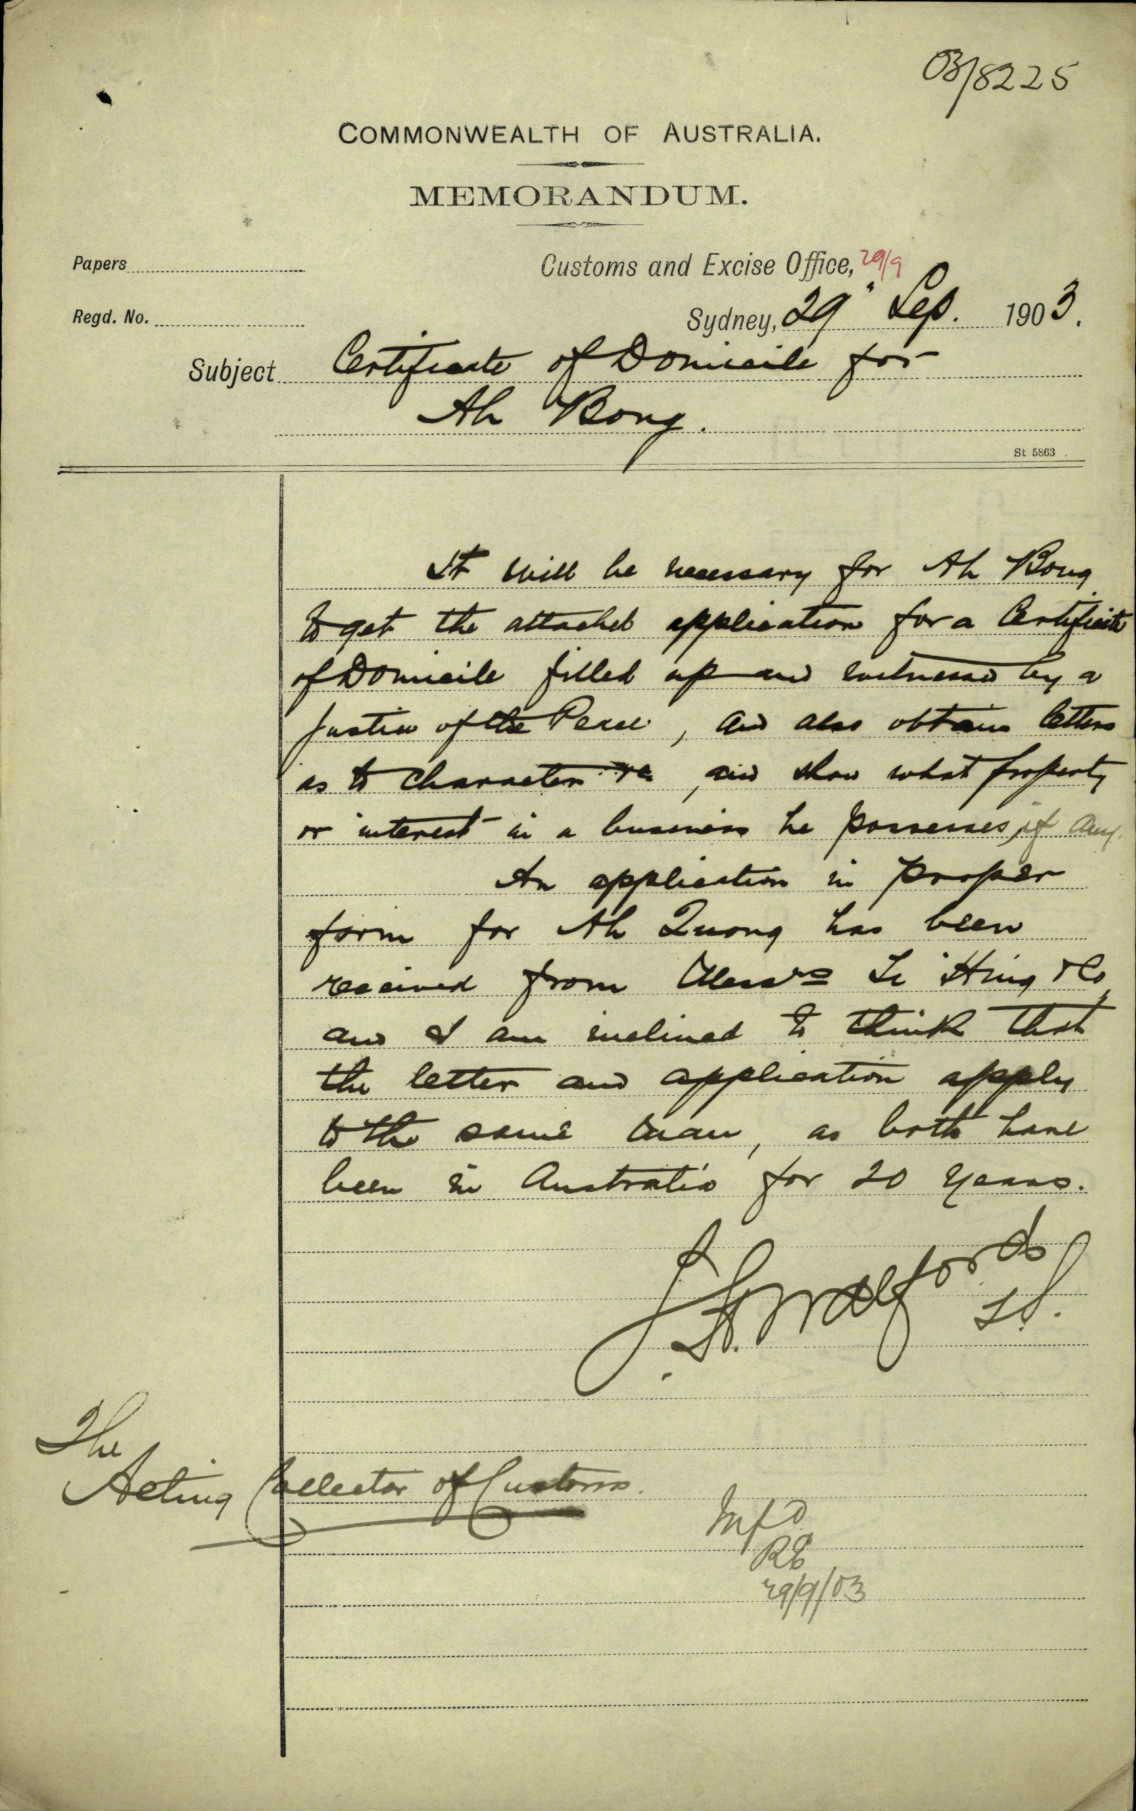 03/8225
COMMONWEALTH OF AUSTRALIA.
MEMORANDUM.
Papers
Customs and Excise Office, 29/9
Regd. No.
Sydney, 29" Sep. 1903.
Subject Certificate of Domicile for
Ah Bong.
St 5863
It will be necessary for Ah Bong
to get the attached application for a Certificate
of Domicile filled up and witnessed by a
Justice of the Peace, and also obtain letters
as to character &c, and show what property
or interest in a business he possesses, if any.
An application in proper
form for Ah Quong has been
received from Messrs Hing & Co,
and I am inclined to think that
the letter and application apply
to the same man, as both have
been in Australia for 20 years.
The
Acting Collector of Customs.
RE
29/9/03